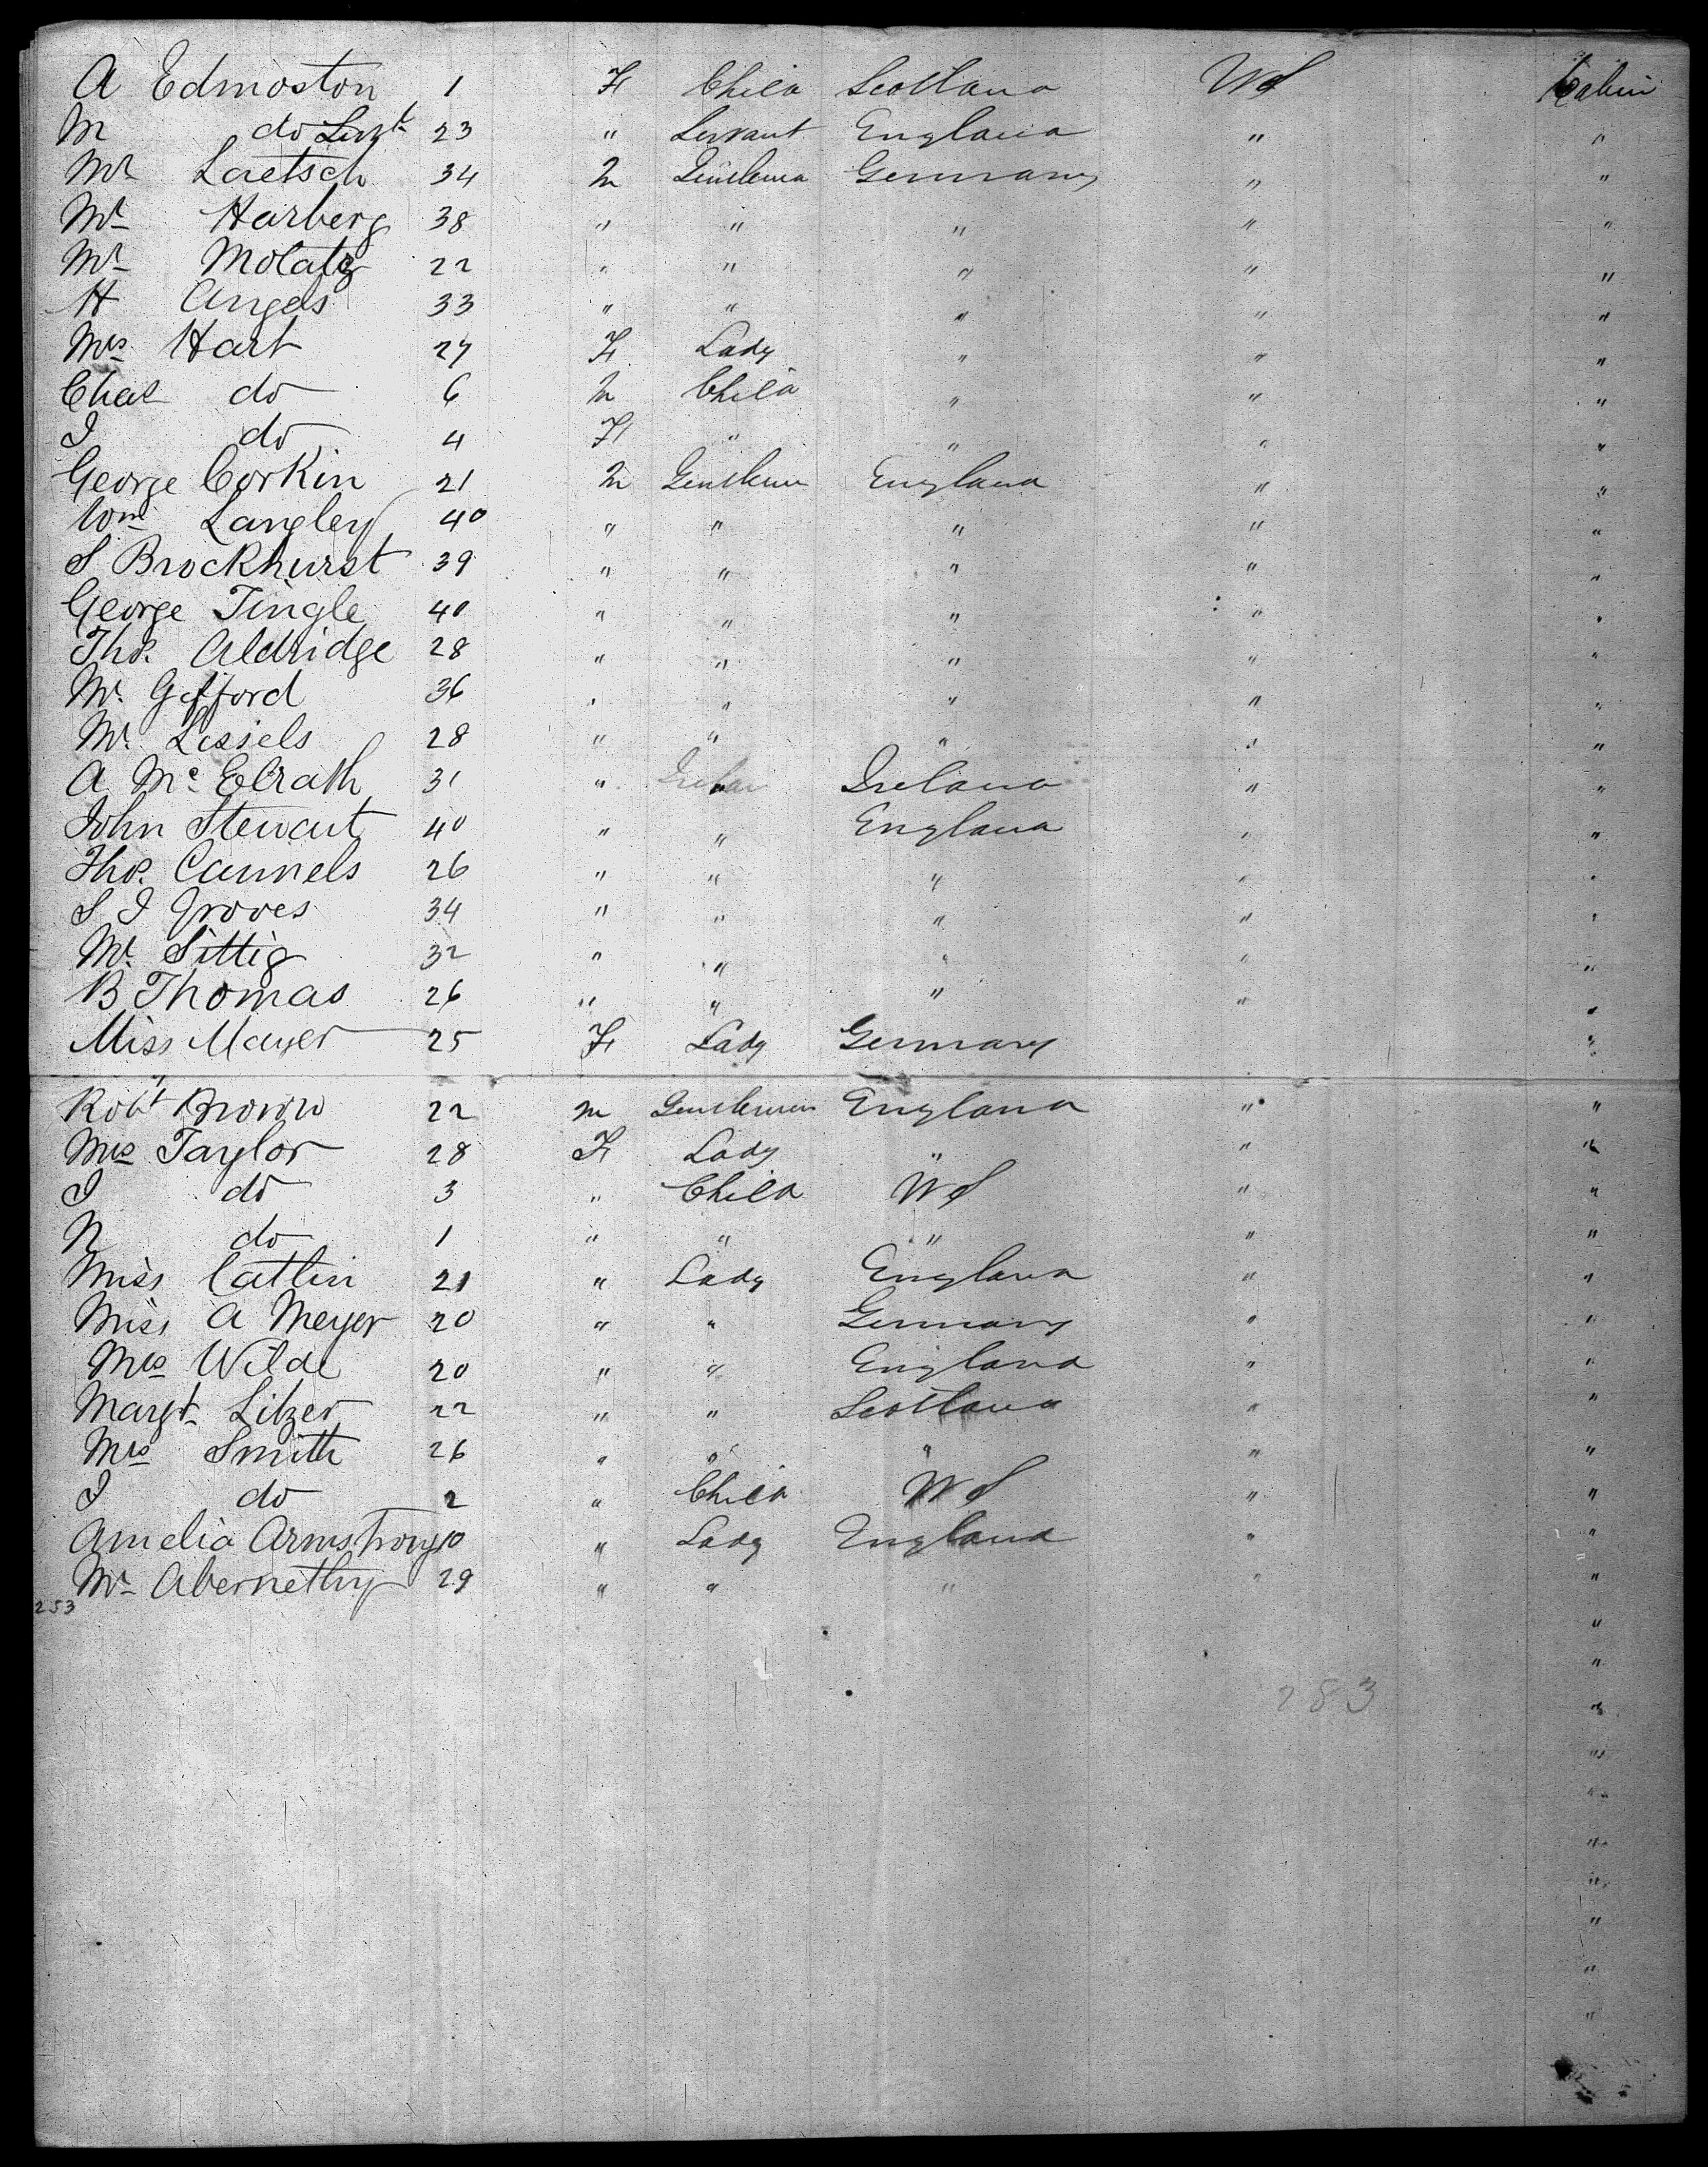 A Edmoston 1 F Child Scotland US Cabin
M do Servt 23 " Servant England " "
Mr Laetsch 34 M Gentleman Germany " "
Mr Harberg 38 " " " " "
Mr Molatz 22 " " " " "
H Angels 33 " " " " "
Mrs Hart 27 F Lady " " "
Chas do 6 M Child " " "
I do 4 F " " " "
George Corkin 21 M Gentlemen England " "
Wm Langley 40 " " " " "
S Brockhurst 39 " " " " "
George Tingle 40 " " " " "
Thos. Aldridge 28 " " " " "
Mr. Gifford 36 " " " " "
Mr. Lessels 28 " " " " "
A McElrath 31 " " Ireland " "
John Stewart 40 " " England " "
Thos. Cannels 26 " " " " "
S I Groves 34 " " " " "
Mr. Sittig 32 " " " " "
B Thomas 26 " " " " "
Miss Mayer 25 F Lady Germany "
Robt Brown 22 M Gentleman England " "
Mrs Taylor 28 F Lady " " "
I do 3 " Child US " "
N do 1 " " " " "
Miss Catlin 21 " Lady England " "
Miss A Meyer 20 " " Germany " "
Mrs Wilde 20 " " England " "
Margt. Litzer 22 " " Scotland " "
Mrs Smith 26 " " " " "
I do 2 " Child US " "
Amelia Armstrong " Lady England " "
Mr Abernethy 29 " " " " "
253
"
"
283
"
"
"
"
"
"
"
"